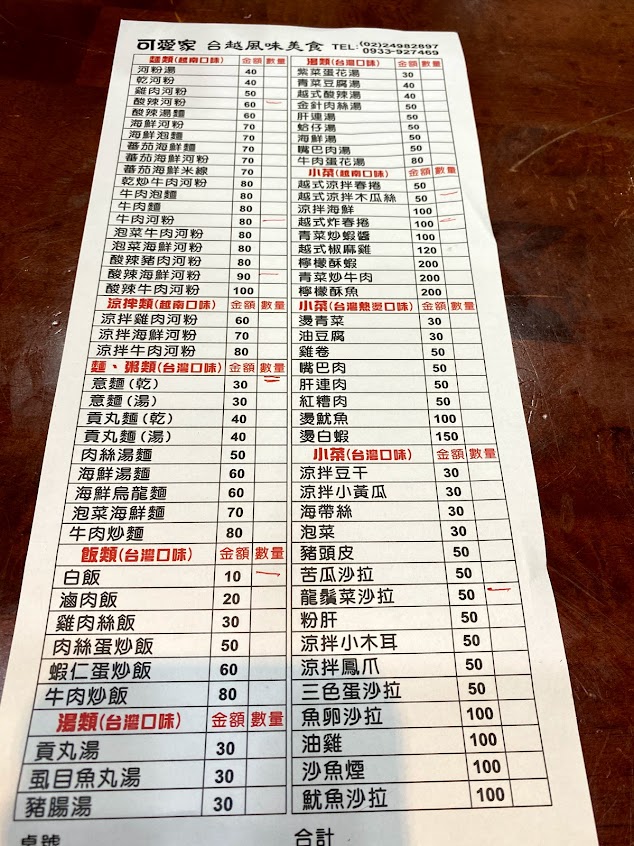 可愛家 台越風味美食 TEL:(02)24982897
0933-927469
麵類(越南口味) 金額 數量
河粉湯 40
乾河粉 40
雞肉河粉 50
酸辣河粉 60
酸辣湯麵 60
海鮮河粉 70
海鮮泡麵 70
蕃茄海鮮麵 70
蕃茄海鮮河粉 70
蕃茄海鮮米線 70
乾炒牛肉河粉 80
牛肉泡麵 80
牛肉麵 80
牛肉河粉 80
泡菜牛肉河粉 80
泡菜海鮮河粉 80
酸辣豬肉河粉 80
酸辣海鮮河粉 90
酸辣牛肉河粉 100
涼拌類(越南口味) 金額 數量
涼拌雞肉河粉 60
涼拌海鮮河粉 70
涼拌牛肉河粉 80
麵、粥類(台灣口味) 金額 數量
意麵(乾) 30
意麵(湯) 30
貢丸麵(乾) 40
貢丸麵(湯) 40
肉絲湯麵 50
海鮮湯麵 60
海鮮烏龍麵 60
泡菜海鮮麵 70
牛肉炒麵 80
飯類(台灣口味) 金額 數量
白飯 10
滷肉飯 20
雞肉絲飯 30
肉絲蛋炒飯 50
蝦仁蛋炒飯 60
牛肉炒飯 80
湯類(台灣口味) 金額 數量
貢丸湯 30
虱目魚丸湯 30
豬腸湯 30
桌號
湯類(台灣口味) 金額 數量
紫菜蛋花湯 30
青菜豆腐湯 40
越式酸辣湯 40
金針肉絲湯 50
肝連湯 50
蛤仔湯 50
海鮮湯 50
嘴巴肉湯 50
牛肉蛋花湯 80
小菜(越南口味) 金額 數量
越式涼拌春捲 50
越式涼拌木瓜絲 50
涼拌海鮮 100
越式炸春捲 100
青菜炒蝦醬 100
越式椒麻雞 120
檸檬酥蝦 200
青菜炒牛肉 200
檸檬酥魚 200
小菜(台灣熱燙口味) 金額 數量
燙青菜 30
油豆腐 30
雞卷 50
嘴巴肉 50
肝連肉 50
紅糟肉 50
燙魷魚 100
燙白蝦 150
小菜(台灣口味) 金額 數量
涼拌豆干 30
涼拌小黃瓜 30
海帶絲 30
泡菜 30
豬頭皮 50
苦瓜沙拉 50
龍鬚菜沙拉 50
粉肝 50
涼拌小木耳 50
涼拌鳳爪 50
三色蛋沙拉 50
魚卵沙拉 100
油雞 100
沙魚煙 100
魷魚沙拉 100
合計